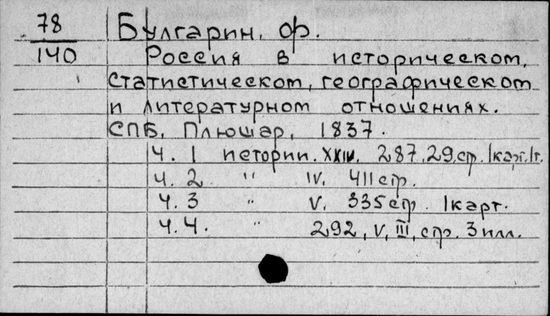 78
140
Булгарин, Ф.
Россия в историческом,
статистическом, географическом
и литературном отношениях.
СПБ, Плюшар, 1837.
Ч. 1 истории. XXIV, 287, 29 стр. 1 карт. 1 т.
Ч. 2 " IV, 411 стр.
Ч. 3 " V, 335 стр. 1 карт.
Ч. 4. " 292, V, III, стр. 3 илл.